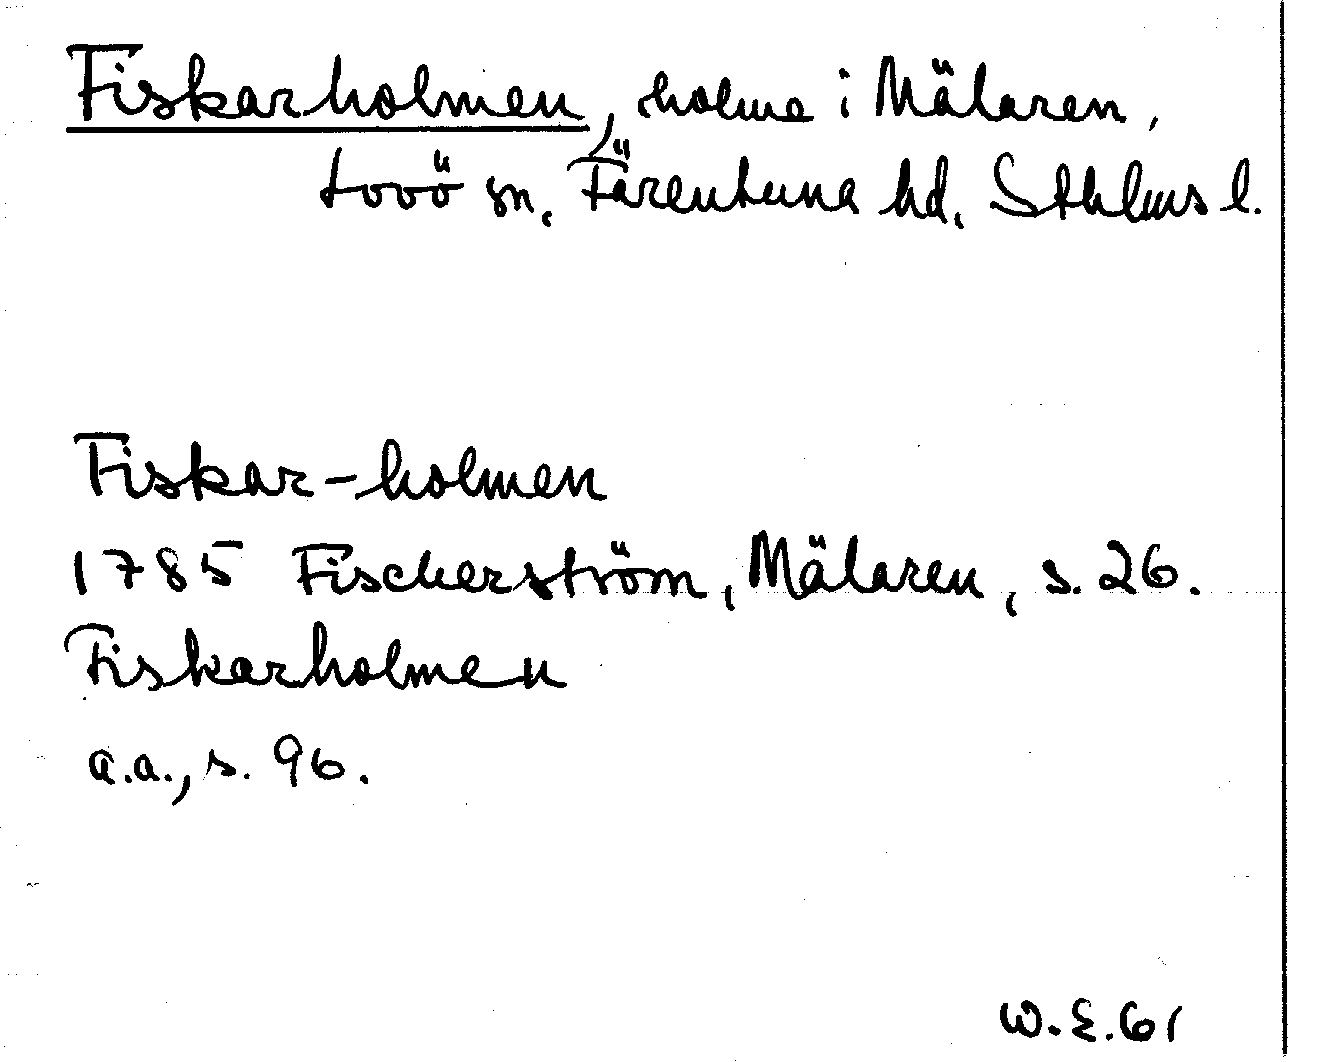 Fiskarholmen, holme i Mälaren,
Lovö sn, Färentuna hd, Sthlms l.
Fiskar-holmen
1785 Fischerström, Mälaren, s. 26.
Fiskarholmen
a.a., s. 96.
W.E.61